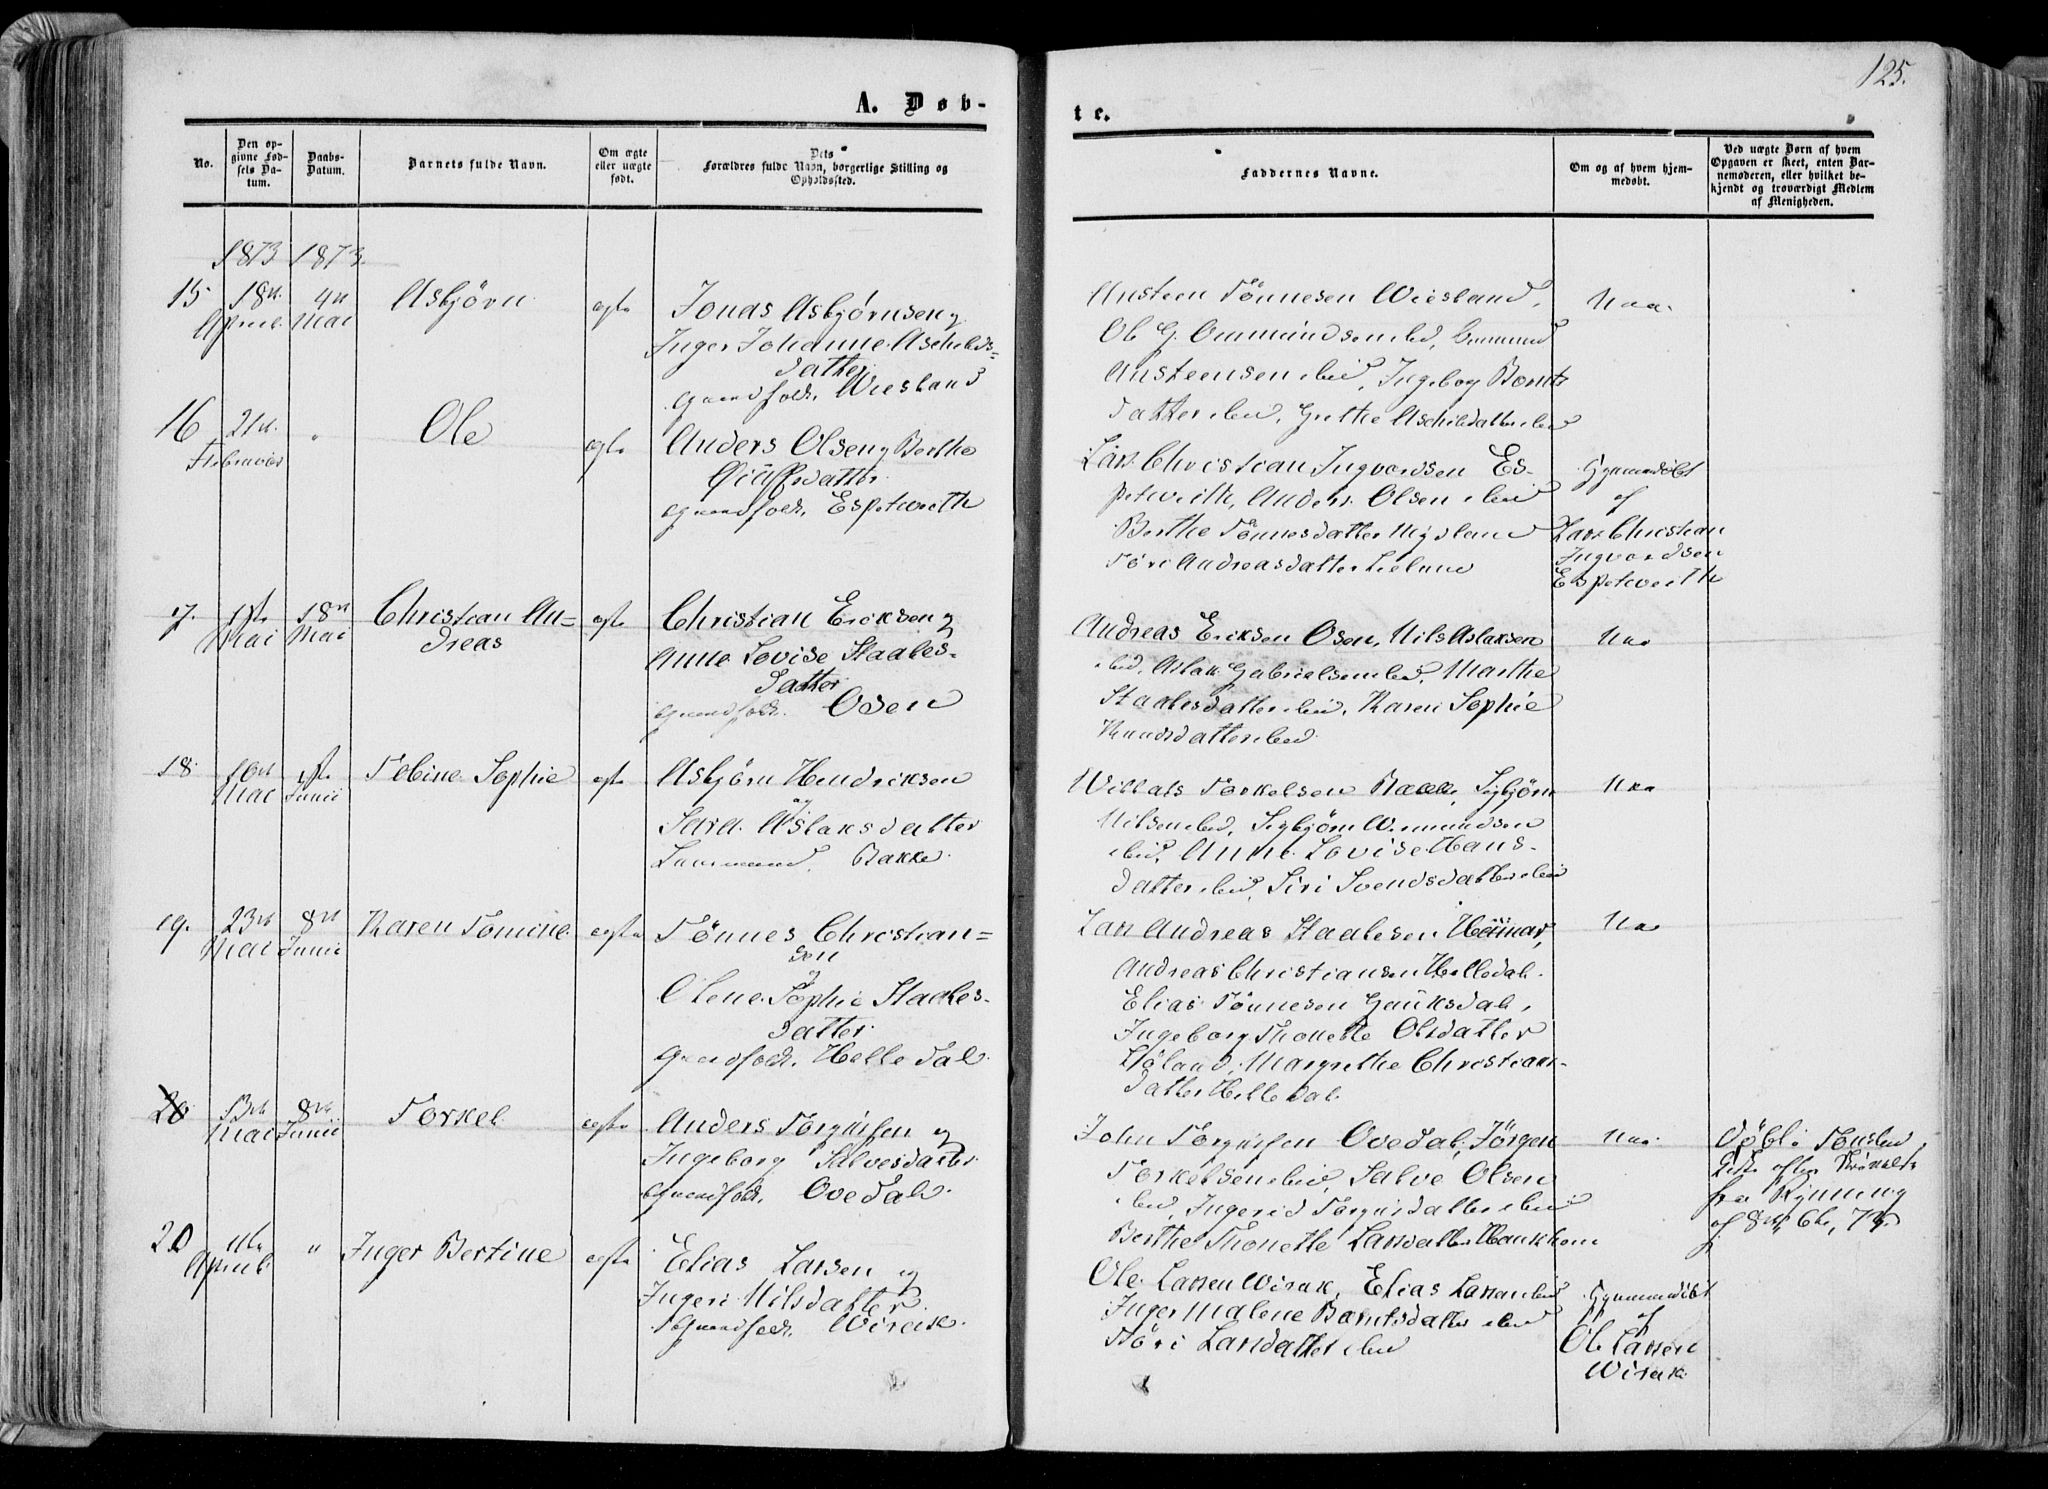 125.
A. Døb-
te.
No.
Den op-
givne Fød-
sels Da-
tum.
Daabs-
Datum.
Barnets fulde Navn.
Om ægte
eller uægte
født.
Dets
Forældres fulde Navn, borgerlige Stilling og
Opholdssted.
Faddernes Navne.
Om og af hvem hjem-
medøbt.
Ved uægte Børn af hvem
Opgaven er skeet, enten Bar-
nemoderen, eller hvilket be-
kjendt og troværdigt Medlem
af Menigheden.
1873 1873.
15
18de
April
4de
Mai
Asbjørn
egte
Jonas Asbjørnsen og
Inger Johanne Aschilds=
datter
Gaardfolk. Wiesland
Ansteen Tønnesen Wiesland,
Ole G. Ommundsen ibd, Ommund
Ansteensen ibid, Ingeborg Bernts
datter ibid, Grethe Aschildatter ibid
Naa.
16
21de
Februar
"
Ole
egte
Anders Olsen og Berthe
datter
Gaardfolk, Espetveith
Lars Christian Ingvardsen Es-
petveith, Anders Olsen ibid
Berthe Tønnesdatter
Andreasdatter
Hjemmedøbt
af
Lars Christian
Ingvardsen
Espetveith
17.
1ste
Mai
18de
Mai
Christian An=
dreas
egte
Christian Eriksen og
Anne Lovise Staales-
datter
Gaardfolk. Osen
Andreas Eriksen Osen, Nils Aslaksen
ibid, Aslak Gabrielsen ibd, Marthe
Staalesdatter ibid, Karen Sophie
Knudsdatter ibid
Naa
18
10de
Mai
1ste
Junii
Tobine Sophie
egte
Asbjørn Hendriksen
og
Sara Aslaksdatter
Bakke.
Torkelsen Bakke, Sigbjørn
Nilsen ibd, Sigbjørn
ibid, Anne Lovise Hans-
datter ibid, Siri Svendsdatter ibid
Naa
19.
23de
Mai
8de
Junii
Karen Tomine
egte
Tønnes Christian=
sen
og
Olene Sophie Staales-
datter
Gaardfolk. Helledal
Lars Andreas Staalesen
Andreas Christiansen Helledal.
Elias Tønnesen Gauksdal,
Ingeborg Thonette Olsdatter
Margrethe Christians-
datter Helledal
Naa
20
13de
Mai
8de
Junii
Torkel
egte
Anders Torgiusen og
Ingeborg Salvesdatter
Gaardfolk, Ovedal.
John Torgiusen Ovedal, Jørgen
Torkelsen ibid, Salve Olsen
ibd, Ingerid Torgiusdatter ibid
Berthe Thonette Larsdatter Haukhom
Naa.
Døbt i
efter
fra
af 8de
20
11te
April
"
Inger Bertine
egte
Elias Larsen og
Ingeri Nilsdatter
Gaardfolk. Wirak.
Ole Larsen Wirak, Elias Larsen ibid
Inger Malene Berntsdatter ibid
Larsdatter ibid
Hjemmedøbt
af
Ole Larsen
Wirak